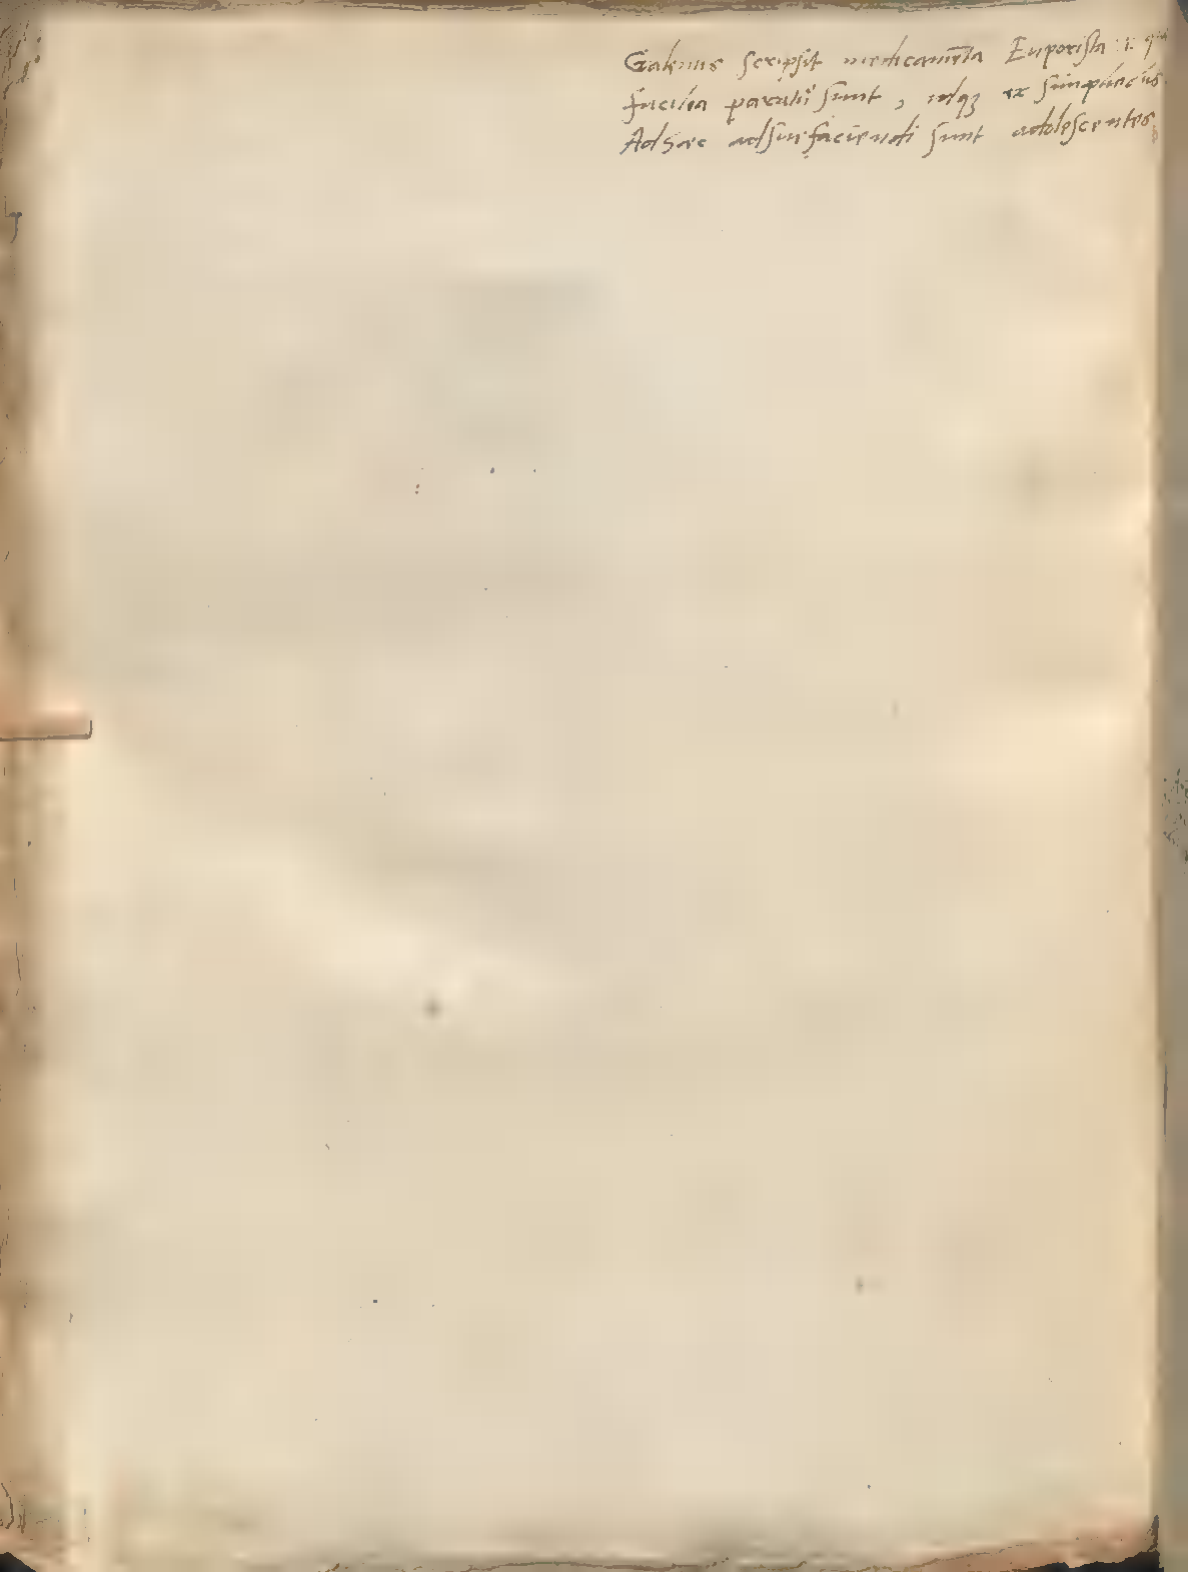 Galenus scripsit medicamēta Euporista .i. quę
facilia paratu sunt, idq; ex simplicijs
Ad hæc adsuefaciendi sunt adolescentes